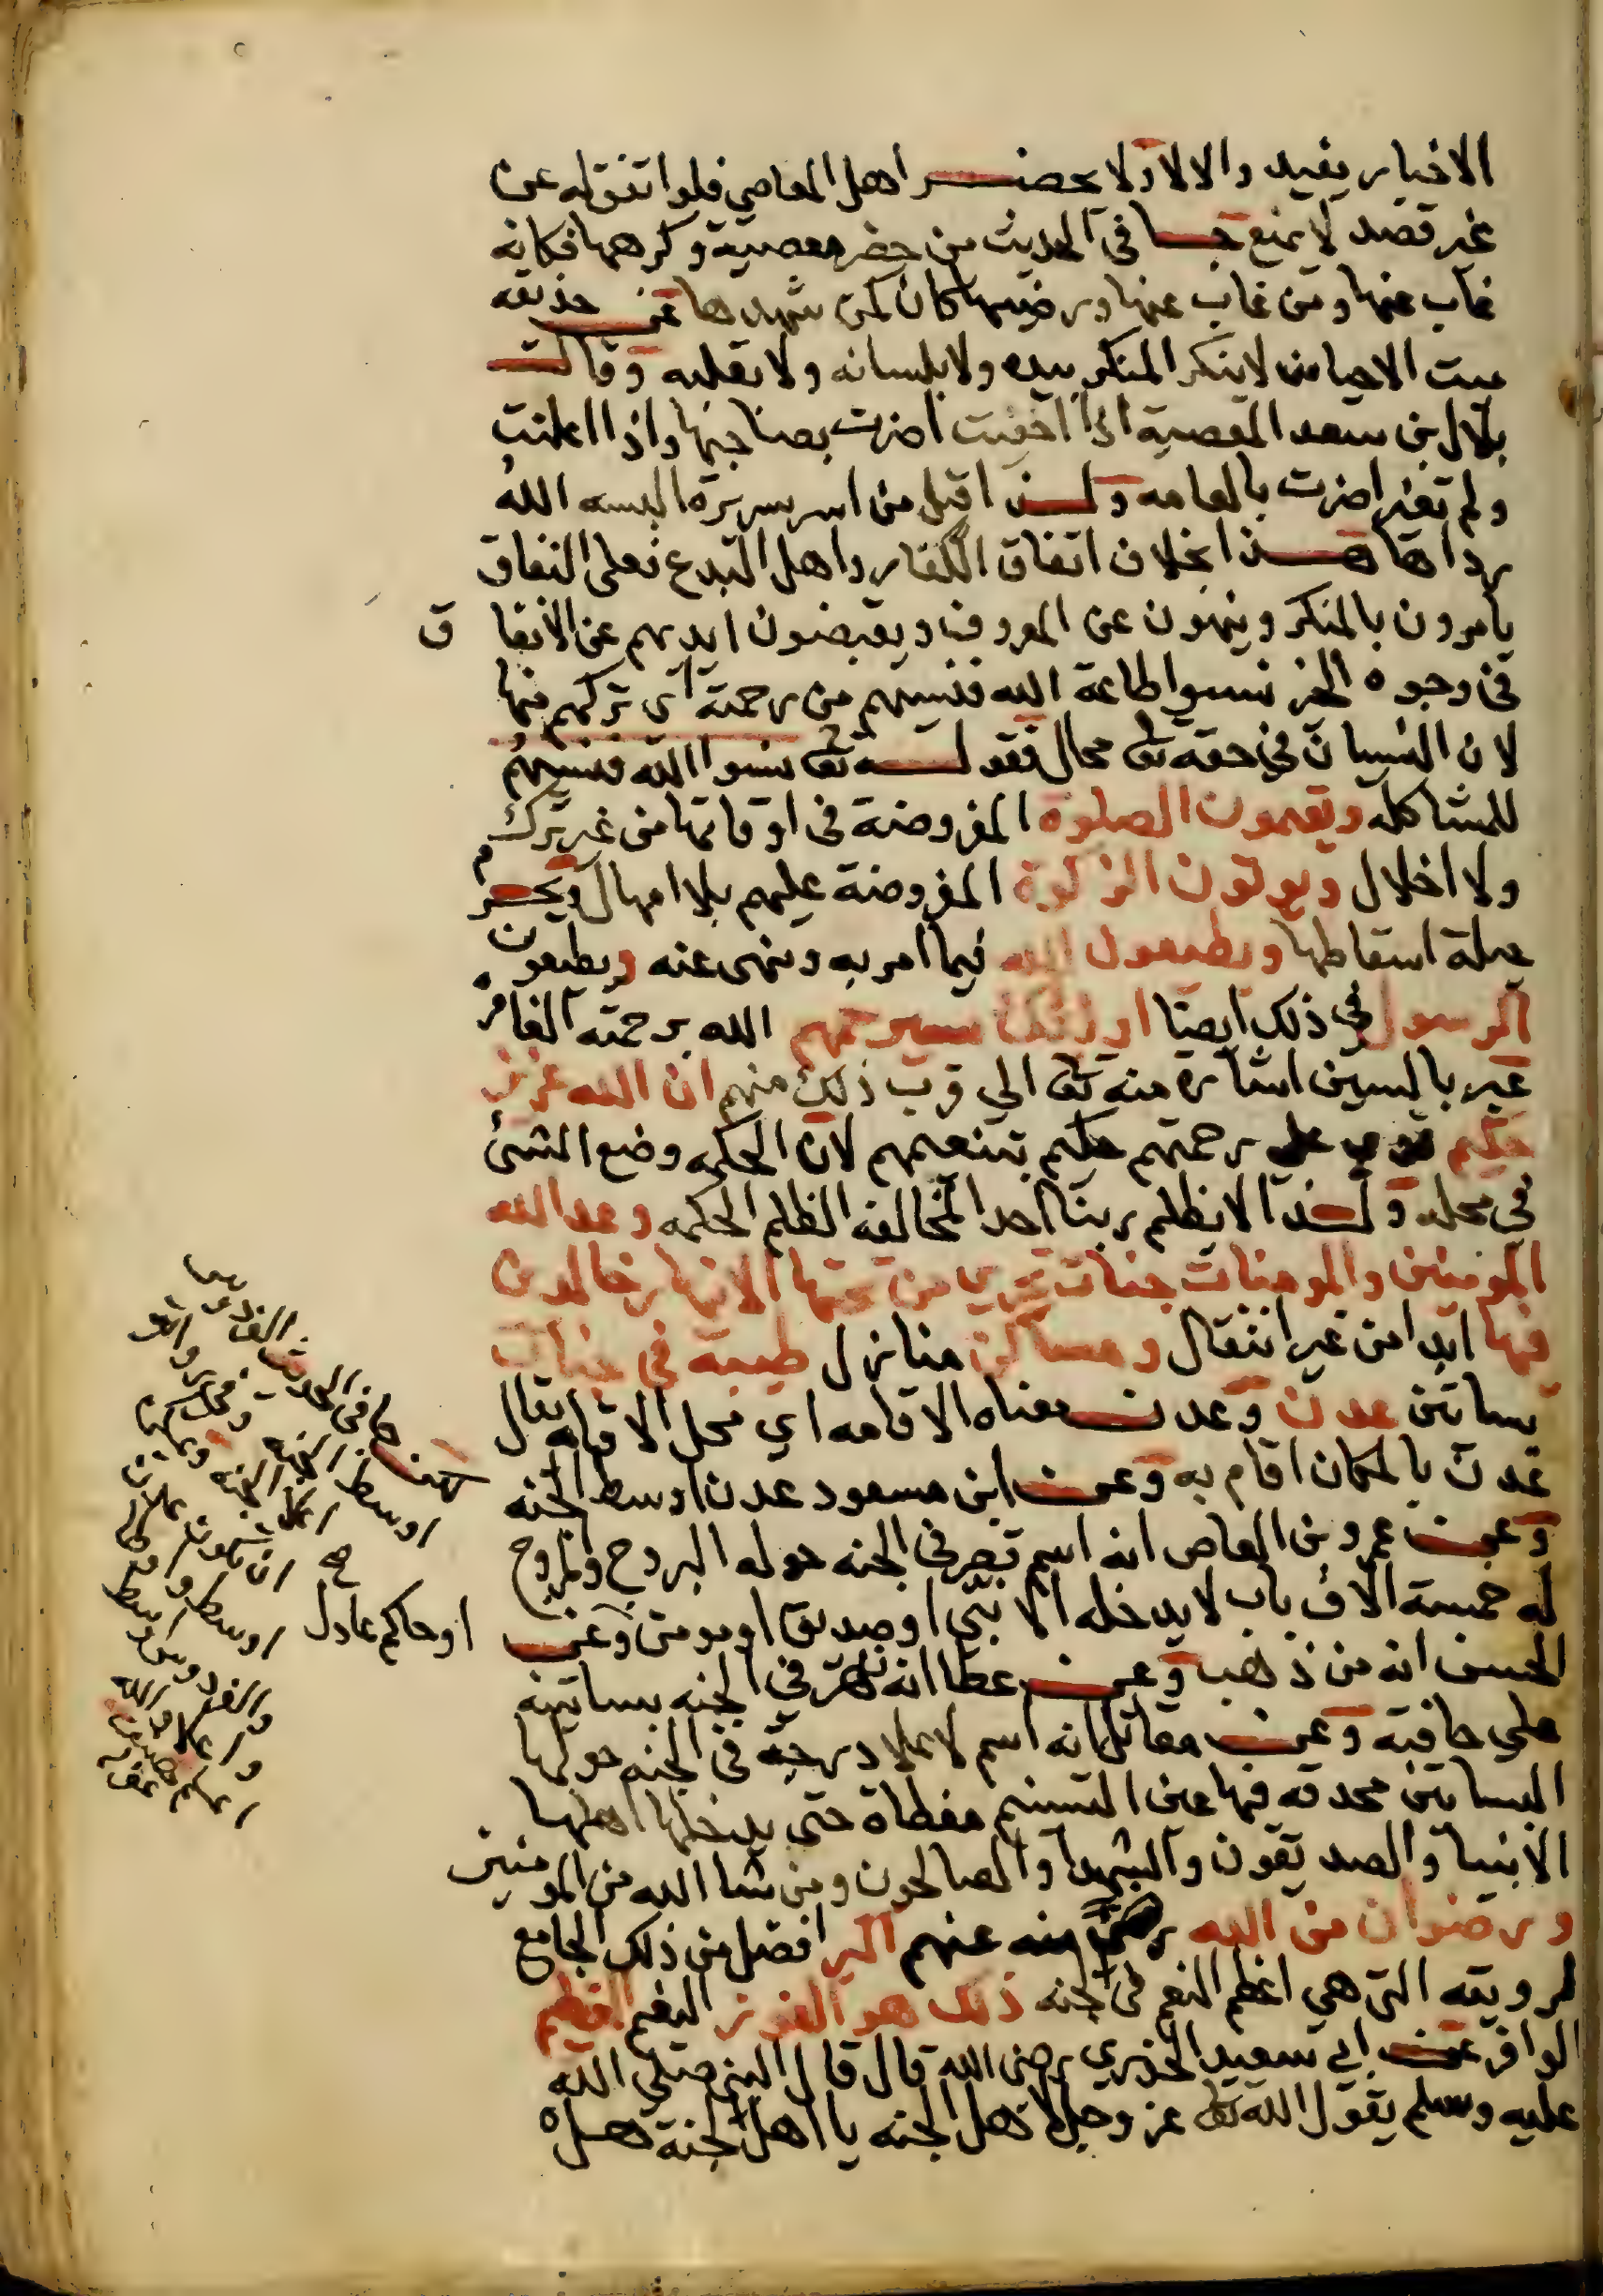 الاخبار يفيد والا لا ولا يحضر اهل المعاصي فلو اتفق له عن
غير قصد لا يمنع جا في الحديث من حضر معصية وكرهها فكانه
غاب عنها ومن غاب عنها ورضيها كان كمن شهدها عن حذيفه
ميت الاحيا من لا ينكر المنكر بيده ولا بلسانه ولا بقلبه وقال
بلال بن سعد المعصية اذا اخفيت اضرت بصاحبها واذا اعلنت
ولم تغير اضرت بالعامه ولذا قيل من اسر سريرة البسه الله
رداها هذا بخلاف اتفاق الكفار واهل البدع فعلى النفاق
يامرون بالمنكر وينهون عن المعروف ويقبضون ايديهم عن الانفاق
في وجوه الخير نسوا طاعة الله فنسيهم من رحمته اي تركهم منها
لان النسيان في حقه تعالى محال فقوله تعالى نسوا الله فنسيهم
للمشاكله ويقيمون الصلوة المفروضة في اوقاتها من غير ترك
ولا اخلال ويوتون الزكوة المفروضة عليهم بلا امهال ويحرم
حيلة اسقاطها ويطيعون الله فيما امر به ونهى عنه ويطيعون
الرسول في ذلك ايضا اوليك سيرحمهم الله برحمته الغامره
عبر بالسين اشارة منه تعالى الى قرب ذلك منهم ان الله عزيز
حكيم قوي على رحمتهم حكيم بتنعيمهم لان الحكمه وضع الشئ
في محله ولذا لا يظلم ربنا احدا لمخالفة الظلم الحكمه وعد الله
المومنين والمومنات جنات تجري من تحتها الانهار خالدين
فيها ابدا من غير انتقال ومساكن منازل طيبة في جنات
بساتين عدن وعدن معناه الاقامه اي محل الاقامه يقال
عدن بالمكان اقام به وعن ابن مسعود عدن اوسط الجنه
وعن عمرو بن العاص انه اسم قصر في الجنه حوله البروج والمروج
له خمسة الاف باب لا يدخله الا نبي او صديق او مومن وعن
او حاكم عادل
الحسن انه من ذهب وعن عطا انه نهر في الجنه بساتينه
على حافيه وعن مقاتل انه اسم لاعلا درجة في الجنه حولها
البساتين محدقه فيها عين التسنيم مغطاة حتى يدخلها اهلها
الانبيا والصديقون والشهدا والصالحون ومن شا الله من المومنين
ورضوان من الله رضى منه عنهم اكبر افضل من ذلك الجامع
لرويته التي هي اعظم النعم في الجنه ذلك هو الفوز النعيم العظيم
الوافر عن ابي سعيد الخدري رضى الله قال قال النبي صلى الله
عليه وسلم يقول الله تعالى عز وجل لاهل الجنه يا اهل الجنة هل
لكن جا في الحديث الفردوس
اوسط الجنه
اعلا الجنه
صح ان تكون عدن
اوسط
والفردوس اوسط
واعلا والله
اعلم